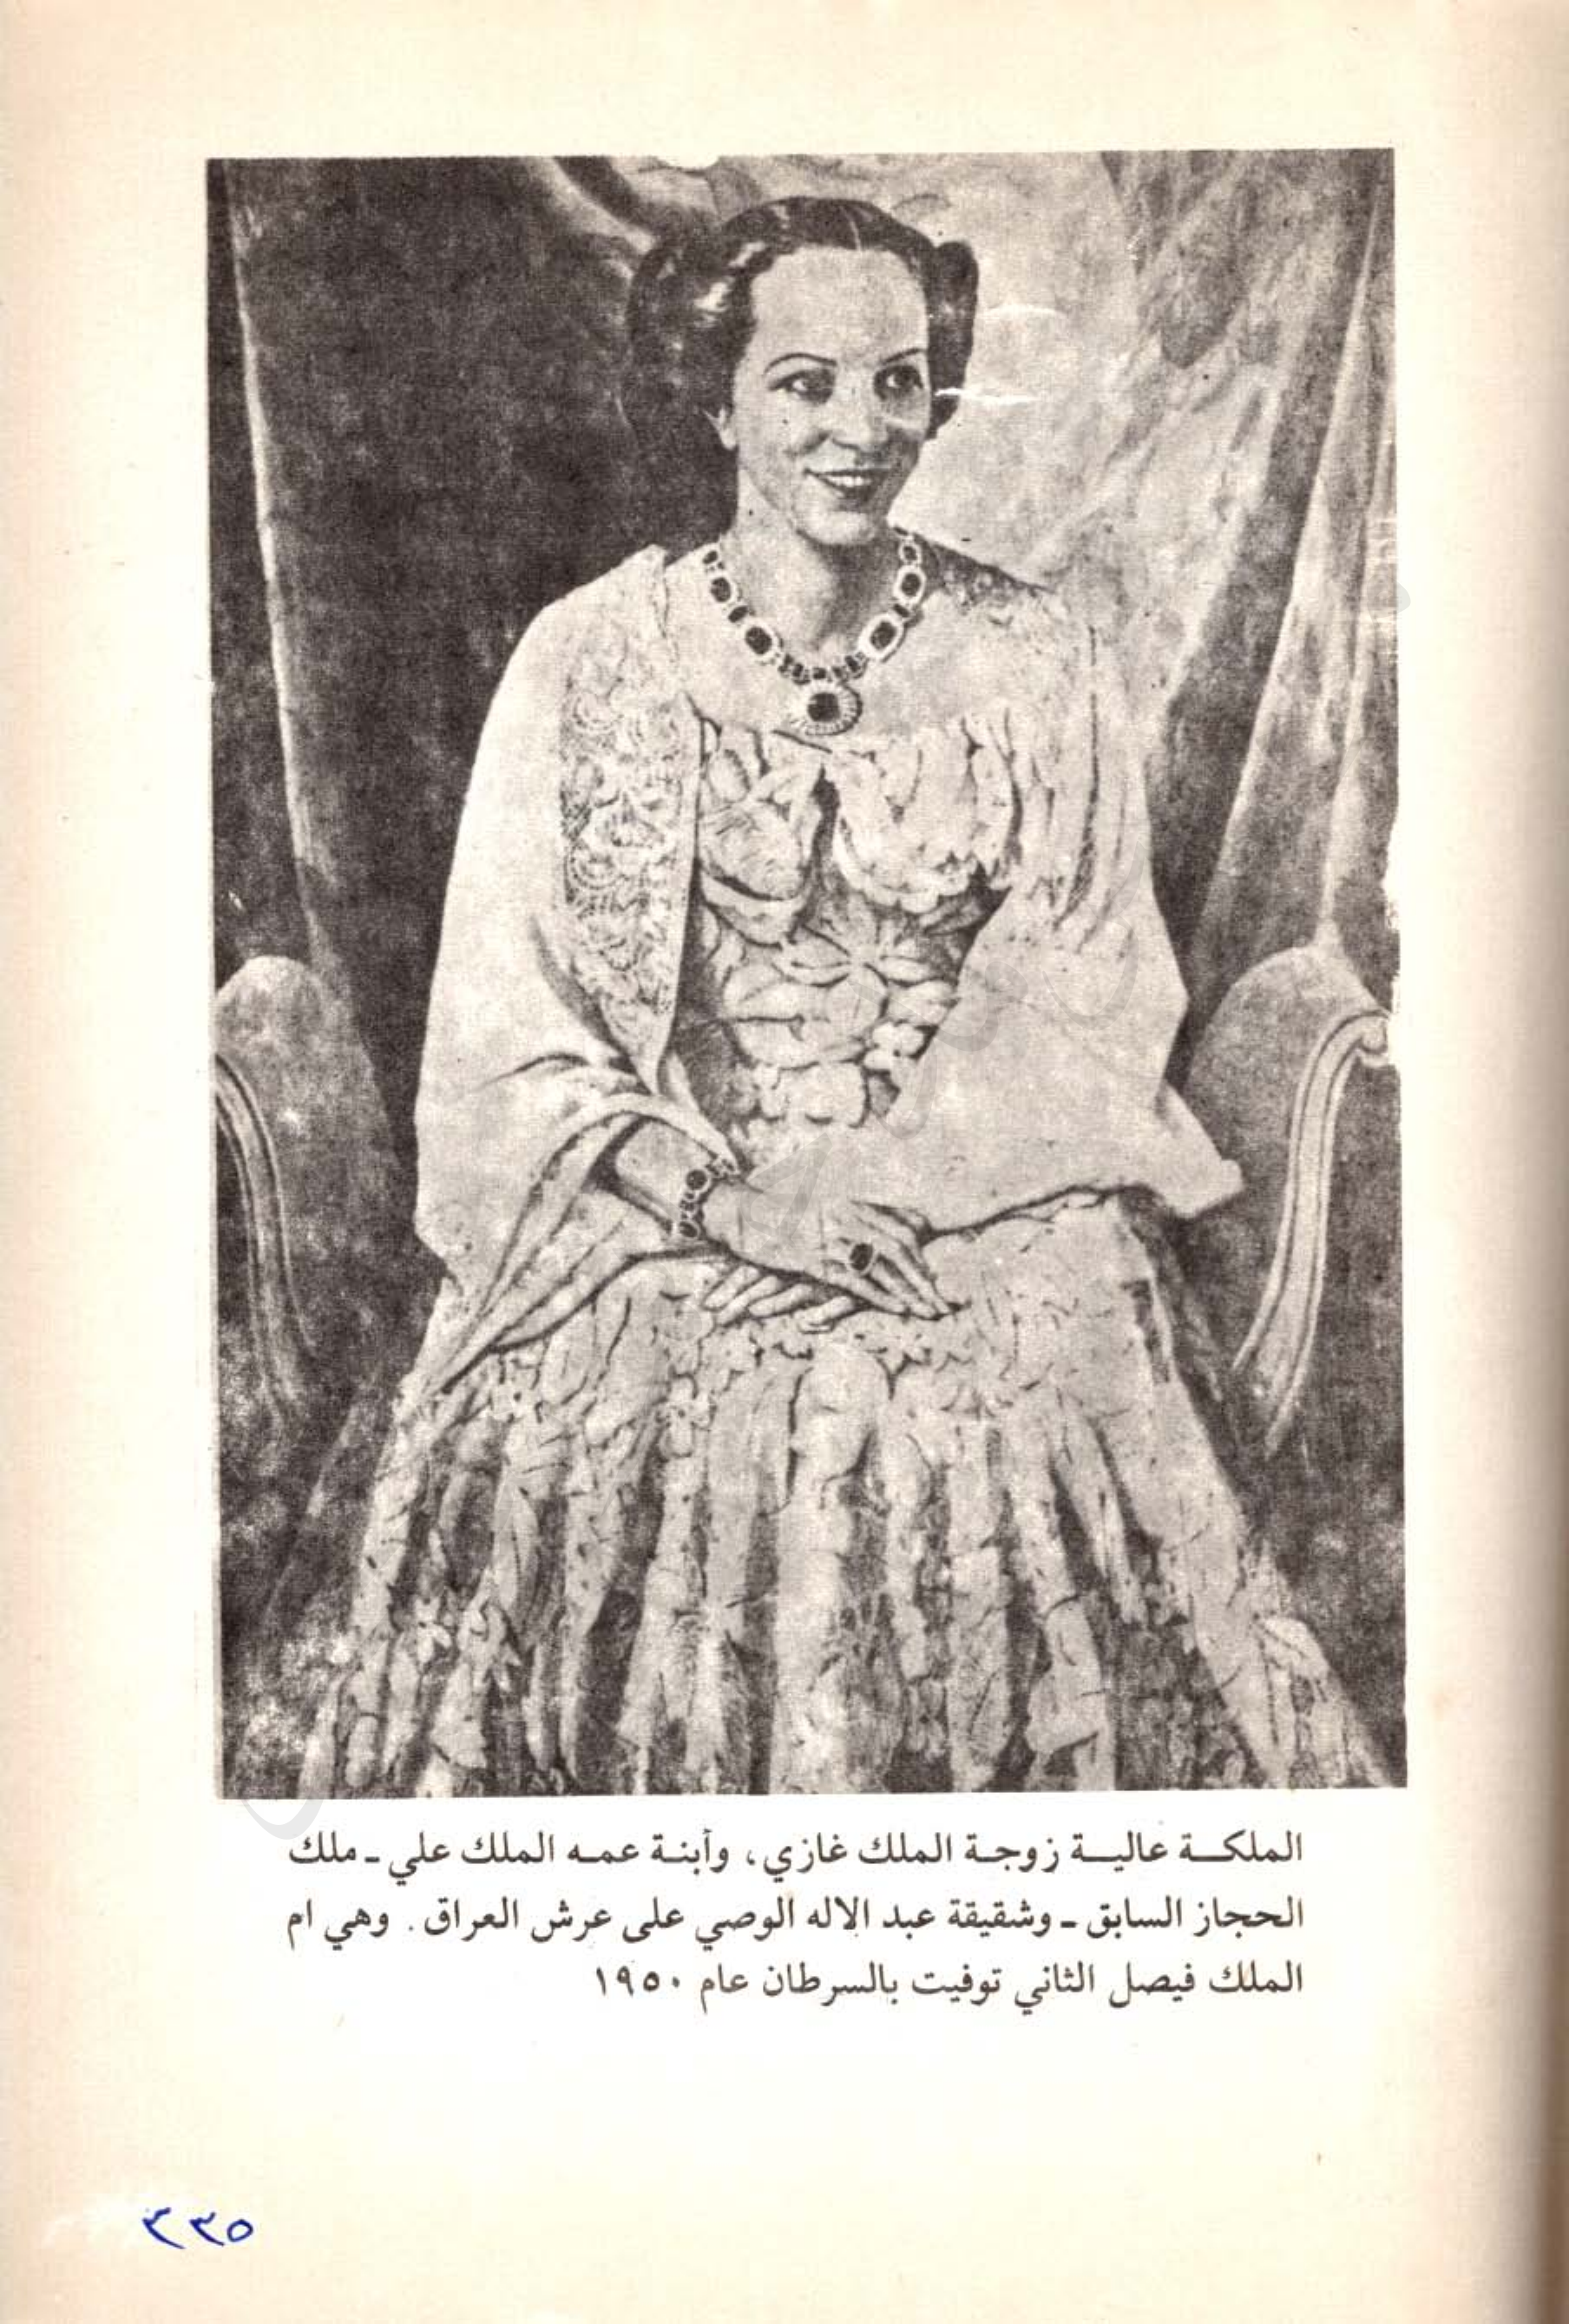 الملكة عالية زوجة الملك غازي، وأبنة عمه الملك علي ـ ملك
الحجاز السابق ـ وشقيقة عبد الاله الوصي على عرش العراق. وهي ام
الملك فيصل الثاني توفيت بالسرطان عام ١٩٥٠
٣٣٥